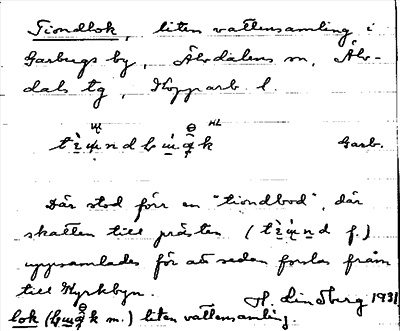 Tiondlok, liten vattensamling i
Garbergs by, Älvdalens sn, Älv-
dals tg, Kopparb. l.
Garb.
Där stod förr en "tiondbod", där
skatten till prästen
uppsamlades för att sedan forslas från
till Kyrkbyn.
H. Lindberg 1931
lok m.) liten vattensamling.